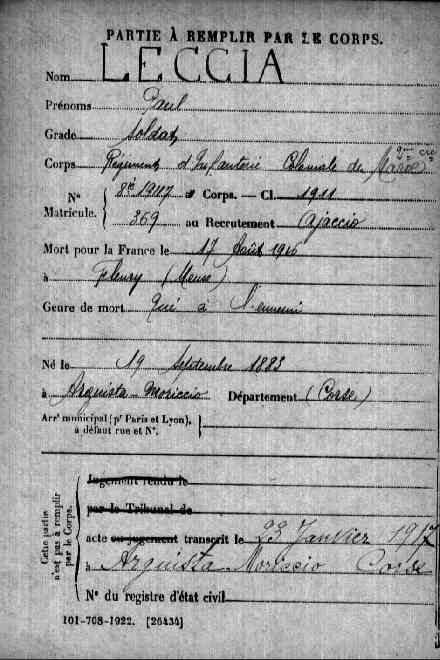 PARTIE À REMPLIR PAR LE CORPS.
Nom LECCIA
Prénoms Paul
Grade Soldat
Corps Régiment d'Infanterie Coloniale du Maroc
N° 8e 19117 Corps. — Cl. 1911
Matricule. 369 au Recrutement Ajaccio
Mort pour la France le 17 Août 1916
à Fleury (Meuse)
Genre de mort Tué à l'ennemi
Né le 19 Septembre 1883
à Arguista-Moriccio Département (Corse)
Arrt municipal (pr Paris et Lyon),
à défaut rue et N°.
Cette partie
n'est pas à remplir
par le Corps.
Jugement rendu le
par le Tribunal de
acte ou jugement transcrit le 23 Janvier 1917
à Arguista Moriccio Corse
N° du registre d'état civil
101-708-1922. [26434]